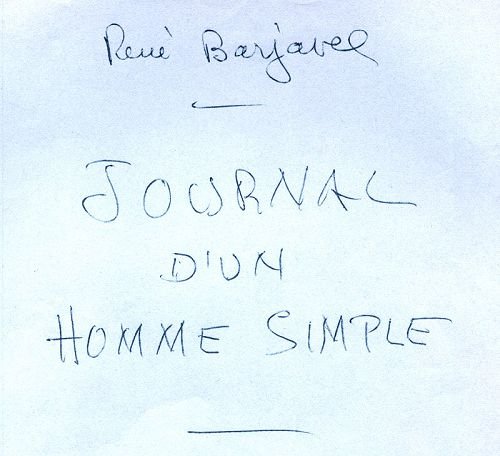 René Barjavel
JOURNAL
D'UN
HOMME SIMPLE